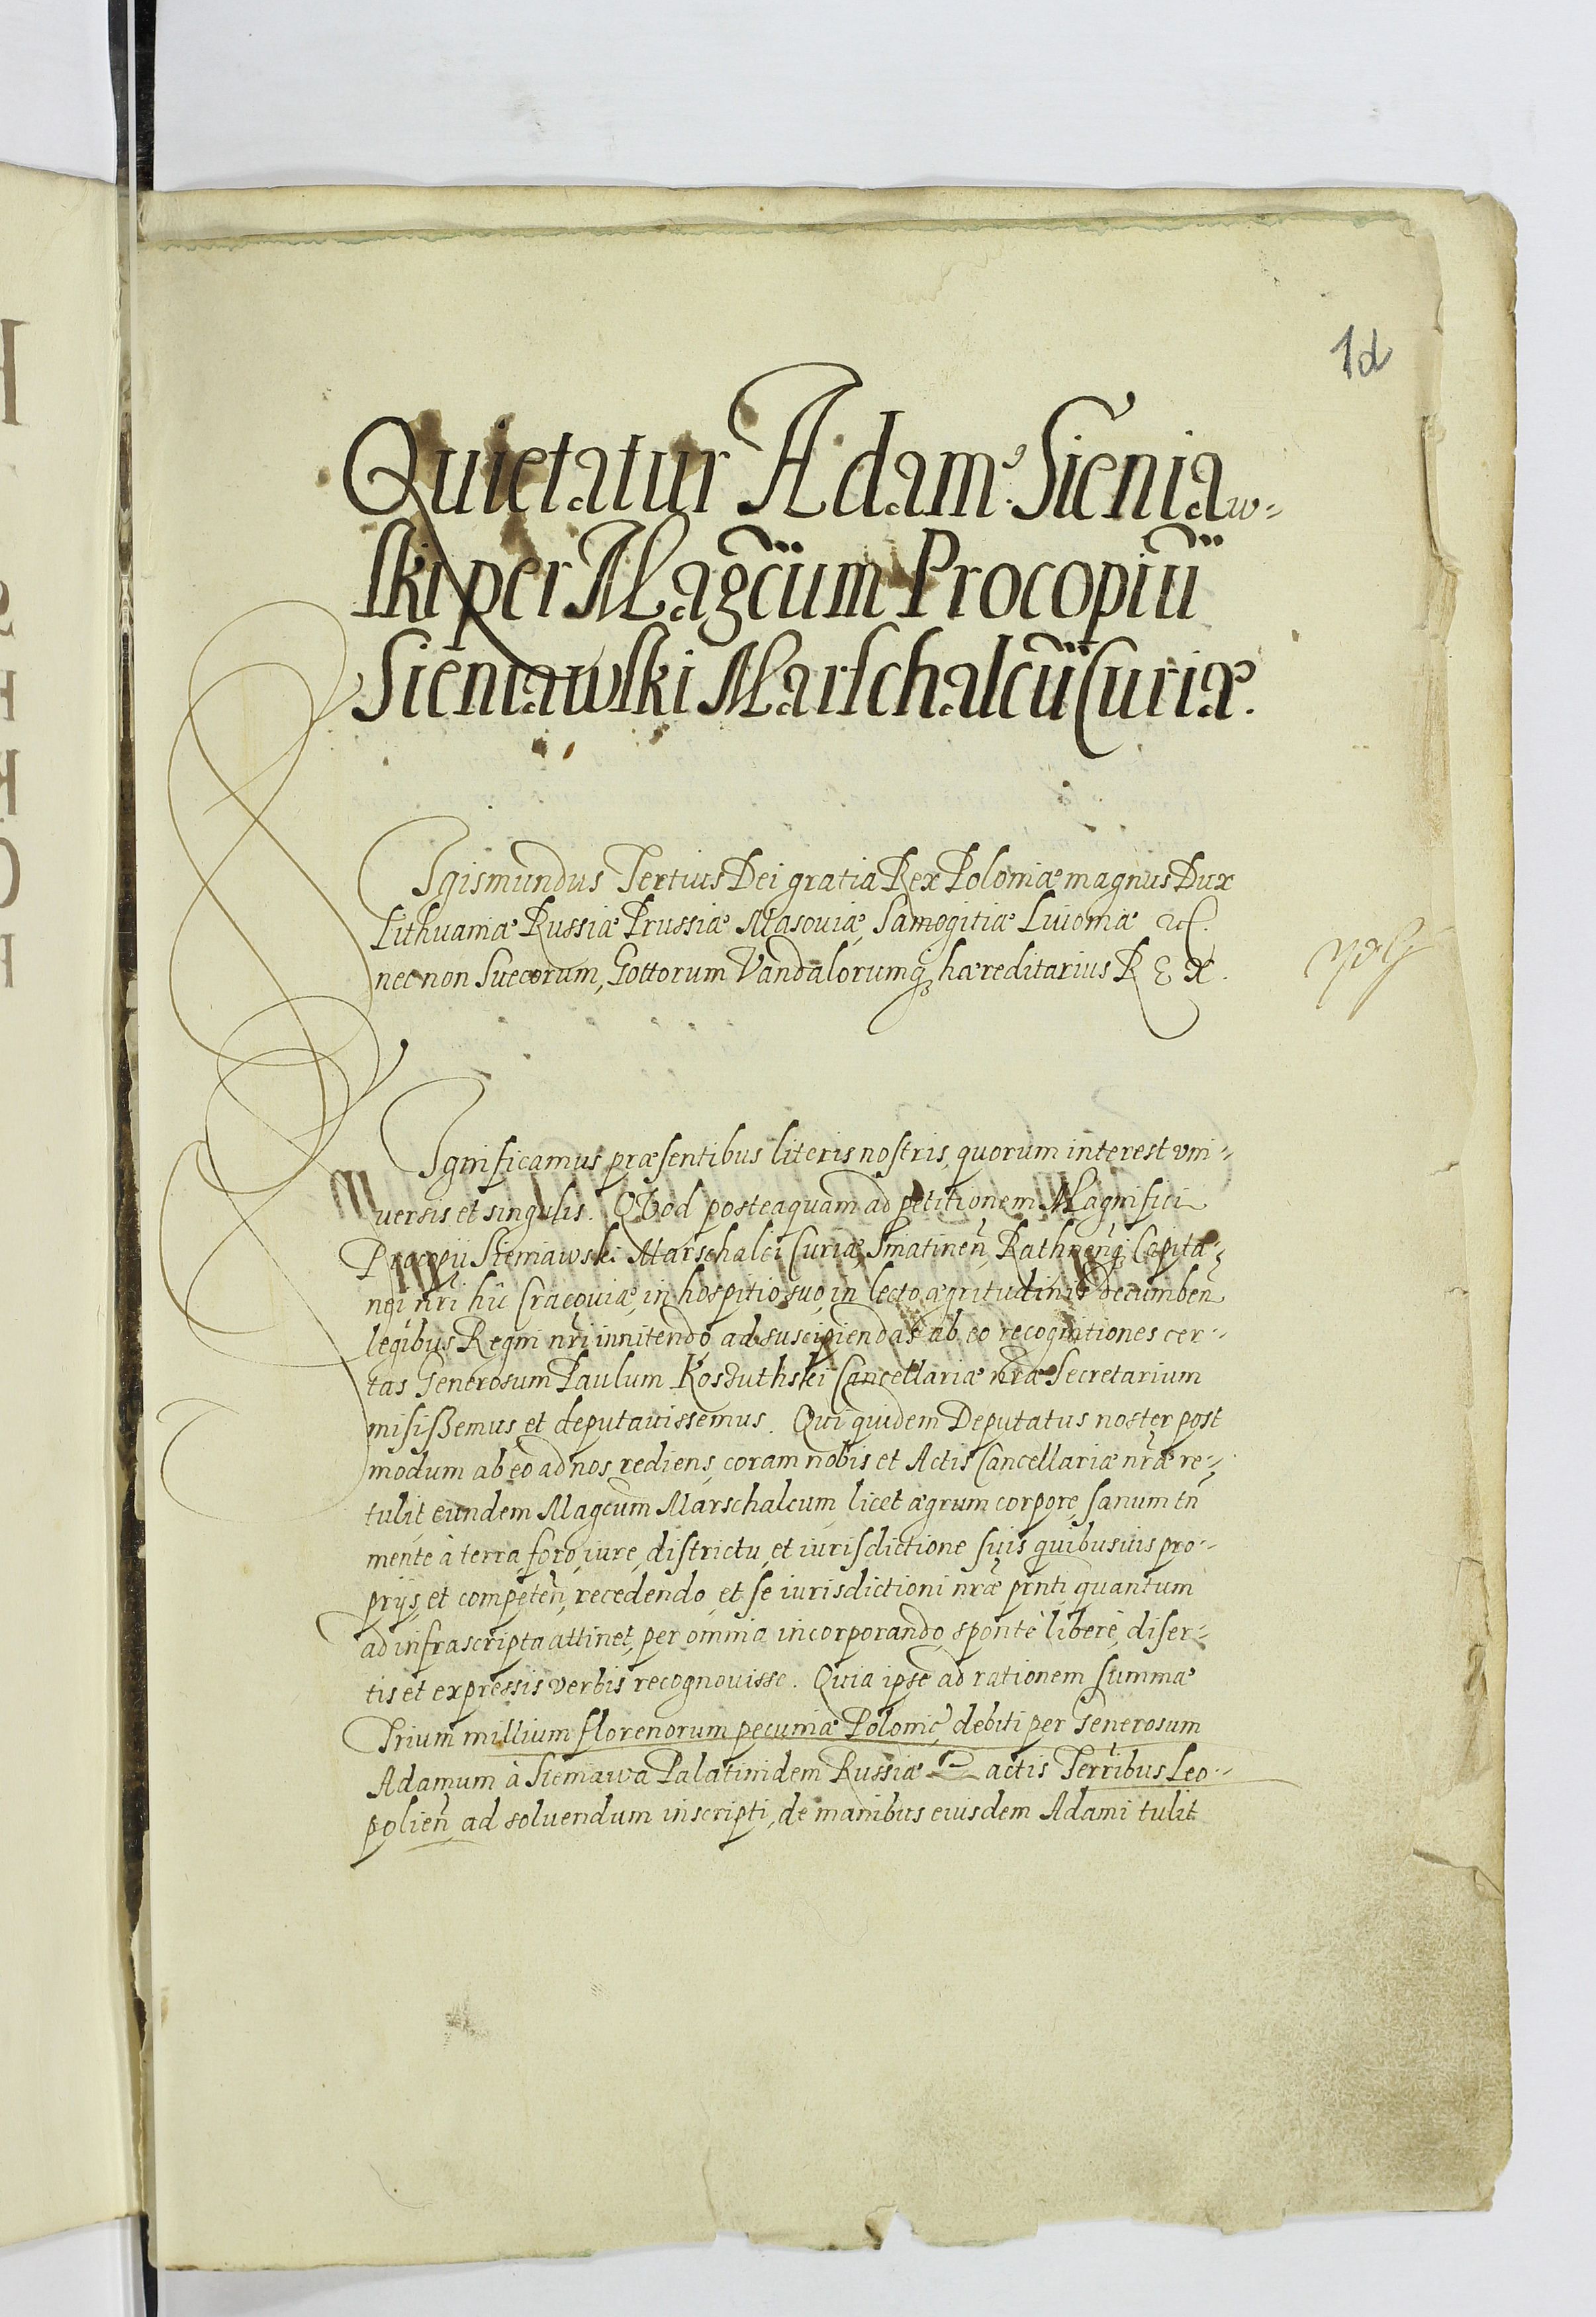 1d
Quietatur Adam⁹ Sieniaw=
ski per Magcium Procopiū
Sieniawski Marschalcū Curiæ.
Sgismundus Tertius Dei gratia Rex Poloniæ magnus Dux
Lithuaniæ Russiæ Prussiæ Masouiæ, Samogitiæ Liuoniæ etc.
nec non Suecorum, Gottorum Vandalorumq; hæreditarius REX.
Significamus præsentibus literis nostris, quorum interest vni-
uersis et singulis. QVod posteaquam ad petitionem Magnifici
Procopii Sieniawski Marschalci Curiæ, Sniatineñ, Rathneñq; Capita-
nei nri hic Cracouiæ, in hospitio suo, in lecto ægritudinis decumbeñ
legibus Regni nri innitendo, ad suscipiendas ab eo recognitiones cer-
tas Generosum Paulum Koszuthski Cancellariæ nræ Secretarium
misissemus et deputauissemus. Qui quidem Deputatus noster post
modum ab eo ad nos rediens, coram nobis et Actis Cancellariæ nræ re-
tulit, eundem Magcum Marschalcum, licet ægrum corpore, sanum tñ
mente à terra, foro, iure, districtu, et iurisdictione suis quibusuis pro-
prijs, et competeñ, recedendo, et se iurisdictioni nræ prnti, quantum
ad infrascripta attinet, per omnia incorporando, sponte libere, diser-
tis et expressis verbis recognouisse. Quia ipse ad rationem summæ
Trium millium florenorum pecuniæ Poloniç debiti per Generosum
Adamum à Sieniawa Palatinidem Russiæ actis Terribus Leo-
polieñ ad soluendum inscripti, de manibus eiusdem Adami tulit